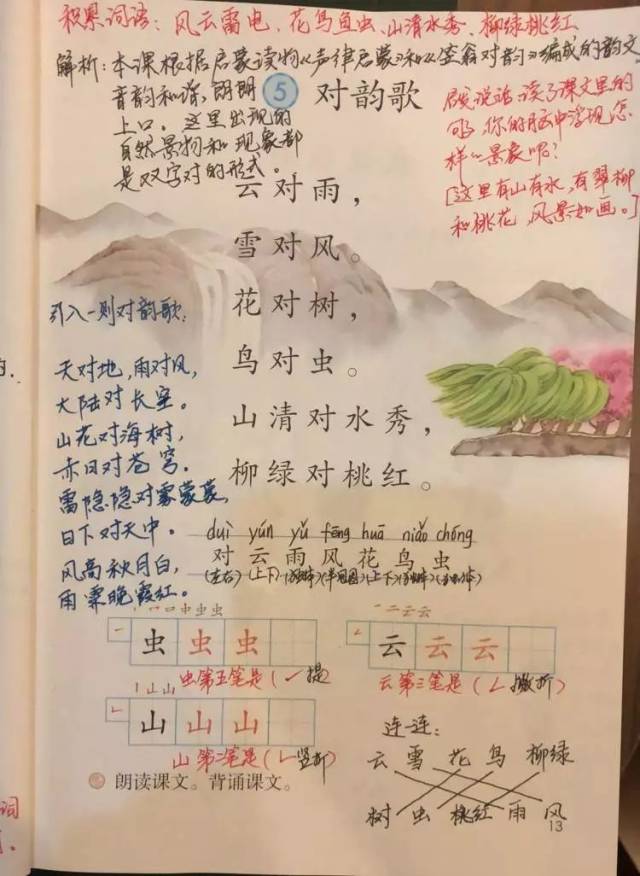 积累词语：风云雷电、花鸟鱼虫、山清水秀、柳绿桃红
解析：本课根据启蒙读物《声律启蒙》和《笠翁对韵》编成的韵文
音韵和谐，朗朗
上口。这里出现的
自然景物和现象都
是双字对的形式。
5 对韵歌
展说话：读了课文里的
句子，你的脑中浮现怎
样一景象呢？
[这里有山有水，有翠柳
和桃花，风景如画。]
云对雨，
雪对风。
花对树，
鸟对虫。
山清对水秀，
柳绿对桃红。
引入一则对韵歌：
天对地，雨对风，
大陆对长空。
山花对海树，
赤日对苍穹。
雷隐隐对雾蒙蒙，
日下对天中。
风高秋月白，
雨霁晚霞红。
duì yún yǔ fēng huā niǎo chóng
对 云 雨 风 花 鸟 虫
(左右)(上下)(独体)(半包围)(上下)(独体)(独体)
虫 虫 虫
虫第五笔是(㇀提
云 云 云
云第三笔是(𠃋撇折)
山 山 山
山第二笔是(𠃊竖折)
连一连：
云 雪 花 鸟 柳绿
树 虫 桃红 雨 风
朗读课文。背诵课文。
13